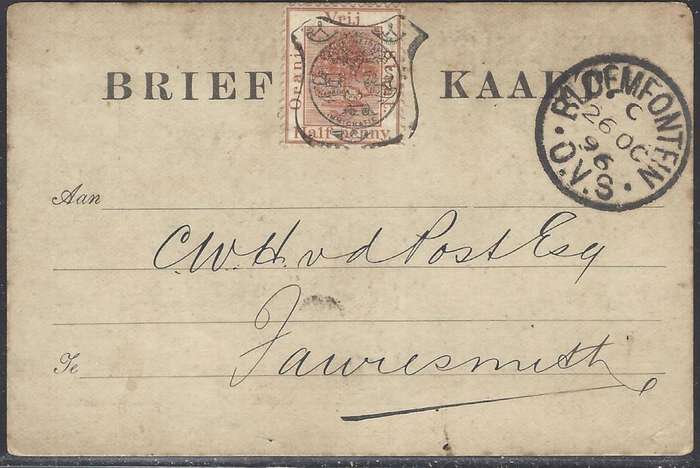 BRIEF KAART
Vrij
Oranje
Half-penny.
BLOEMFONTEIN
C
26 OC
96
O.V.S.
Aan
C.W.H. v d Post Esq
Te
Fauresmith